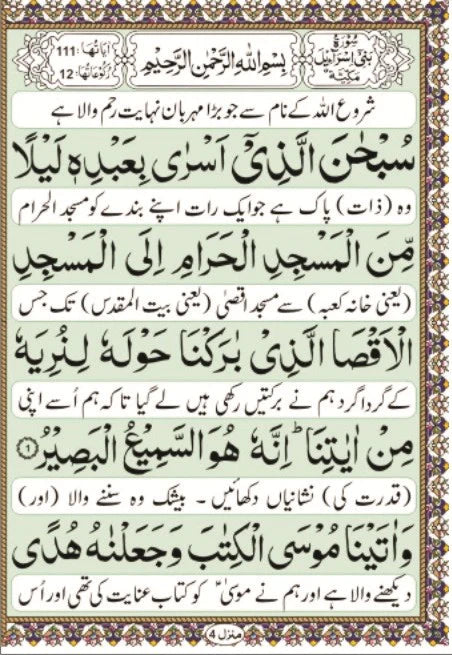 سُوْرَةُ بَنِیْۤ اِسْرَآءِیْلَ مَکِّیَّةٌ
بِسْمِ اللهِ الرَّحْمٰنِ الرَّحِیْمِ
اٰیَاتُهَا: 111
رُکُوْعَاتُهَا: 12
شروع اللہ کے نام سے جو بڑا مہربان نہایت رحم والا ہے
سُبْحٰنَ الَّذِیْۤ اَسْرٰی بِعَبْدِهٖ لَیْلًا
وہ (ذات) پاک ہے جو ایک رات اپنے بندے کو مسجد الحرام
مِّنَ الْمَسْجِدِ الْحَرَامِ اِلَی الْمَسْجِدِ
(یعنی خانہ کعبہ) سے مسجد اقصیٰ (یعنی بیت المقدس) تک جس
الْاَقْصَا الَّذِیْ بٰرَکْنَا حَوْلَهٗ لِنُرِیَهٗ
کے گردا گرد ہم نے برکتیں رکھی ہیں لے گیا تا کہ ہم اُسے اپنی
مِنْ اٰیٰتِنَا ؕ اِنَّهٗ هُوَ السَّمِیْعُ الْبَصِیْرُ ۝۱
(قدرت کی) نشانیاں دکھائیں ۔ بیشک وہ سننے والا (اور)
وَ اٰتَیْنَا مُوْسَی الْکِتٰبَ وَ جَعَلْنٰهُ هُدًی
دیکھنے والا ہے اور ہم نے موسیٰؑ کو کتاب عنایت کی تھی اور اُس
منزل 4